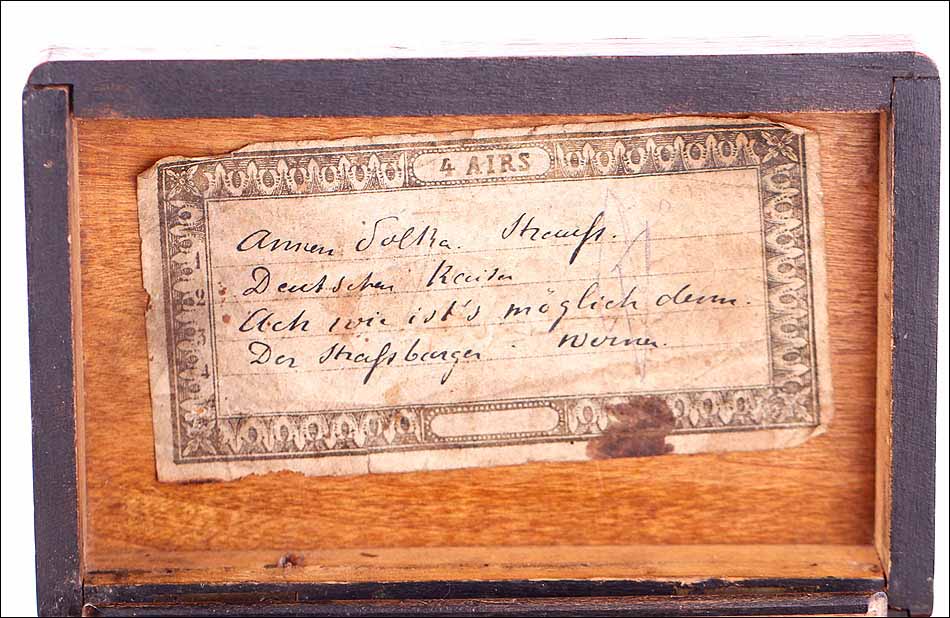 4 AIRS
Annen Polka. Strauss.
Deutschen Kaiser
Ach wie ist's möglich denn.
Der Strassburger. Werner.